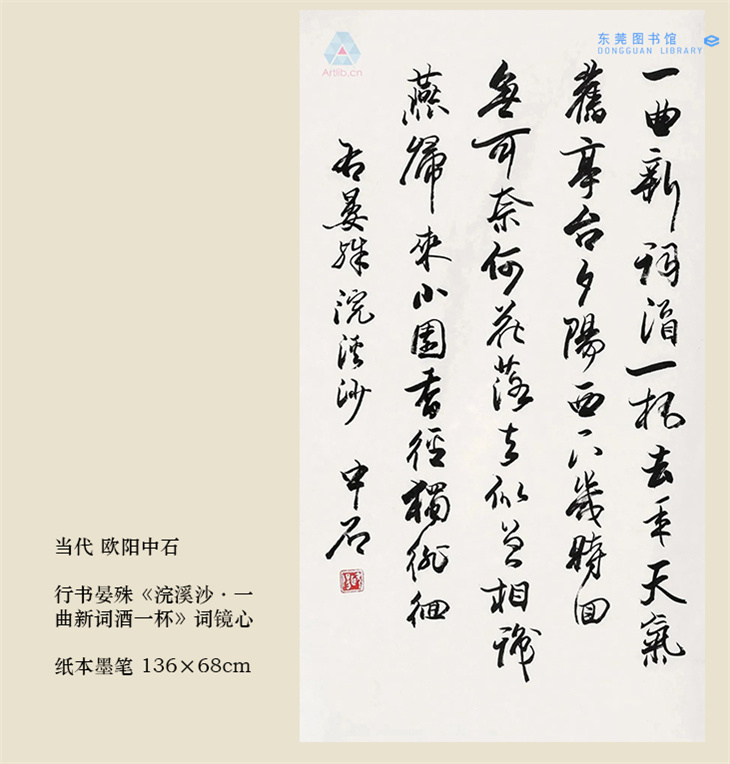 东莞图书馆
DONGGUAN LIBRARY
Artlib.cn
一曲新詞酒一杯去年天氣
舊亭台夕陽西下幾時回
無可奈何花落去似曾相識
燕歸來小園香徑獨徘徊
右晏殊浣溪沙 中石
当代 欧阳中石
行书晏殊《浣溪沙·一
曲新词酒一杯》词镜心
纸本墨笔 136×68cm